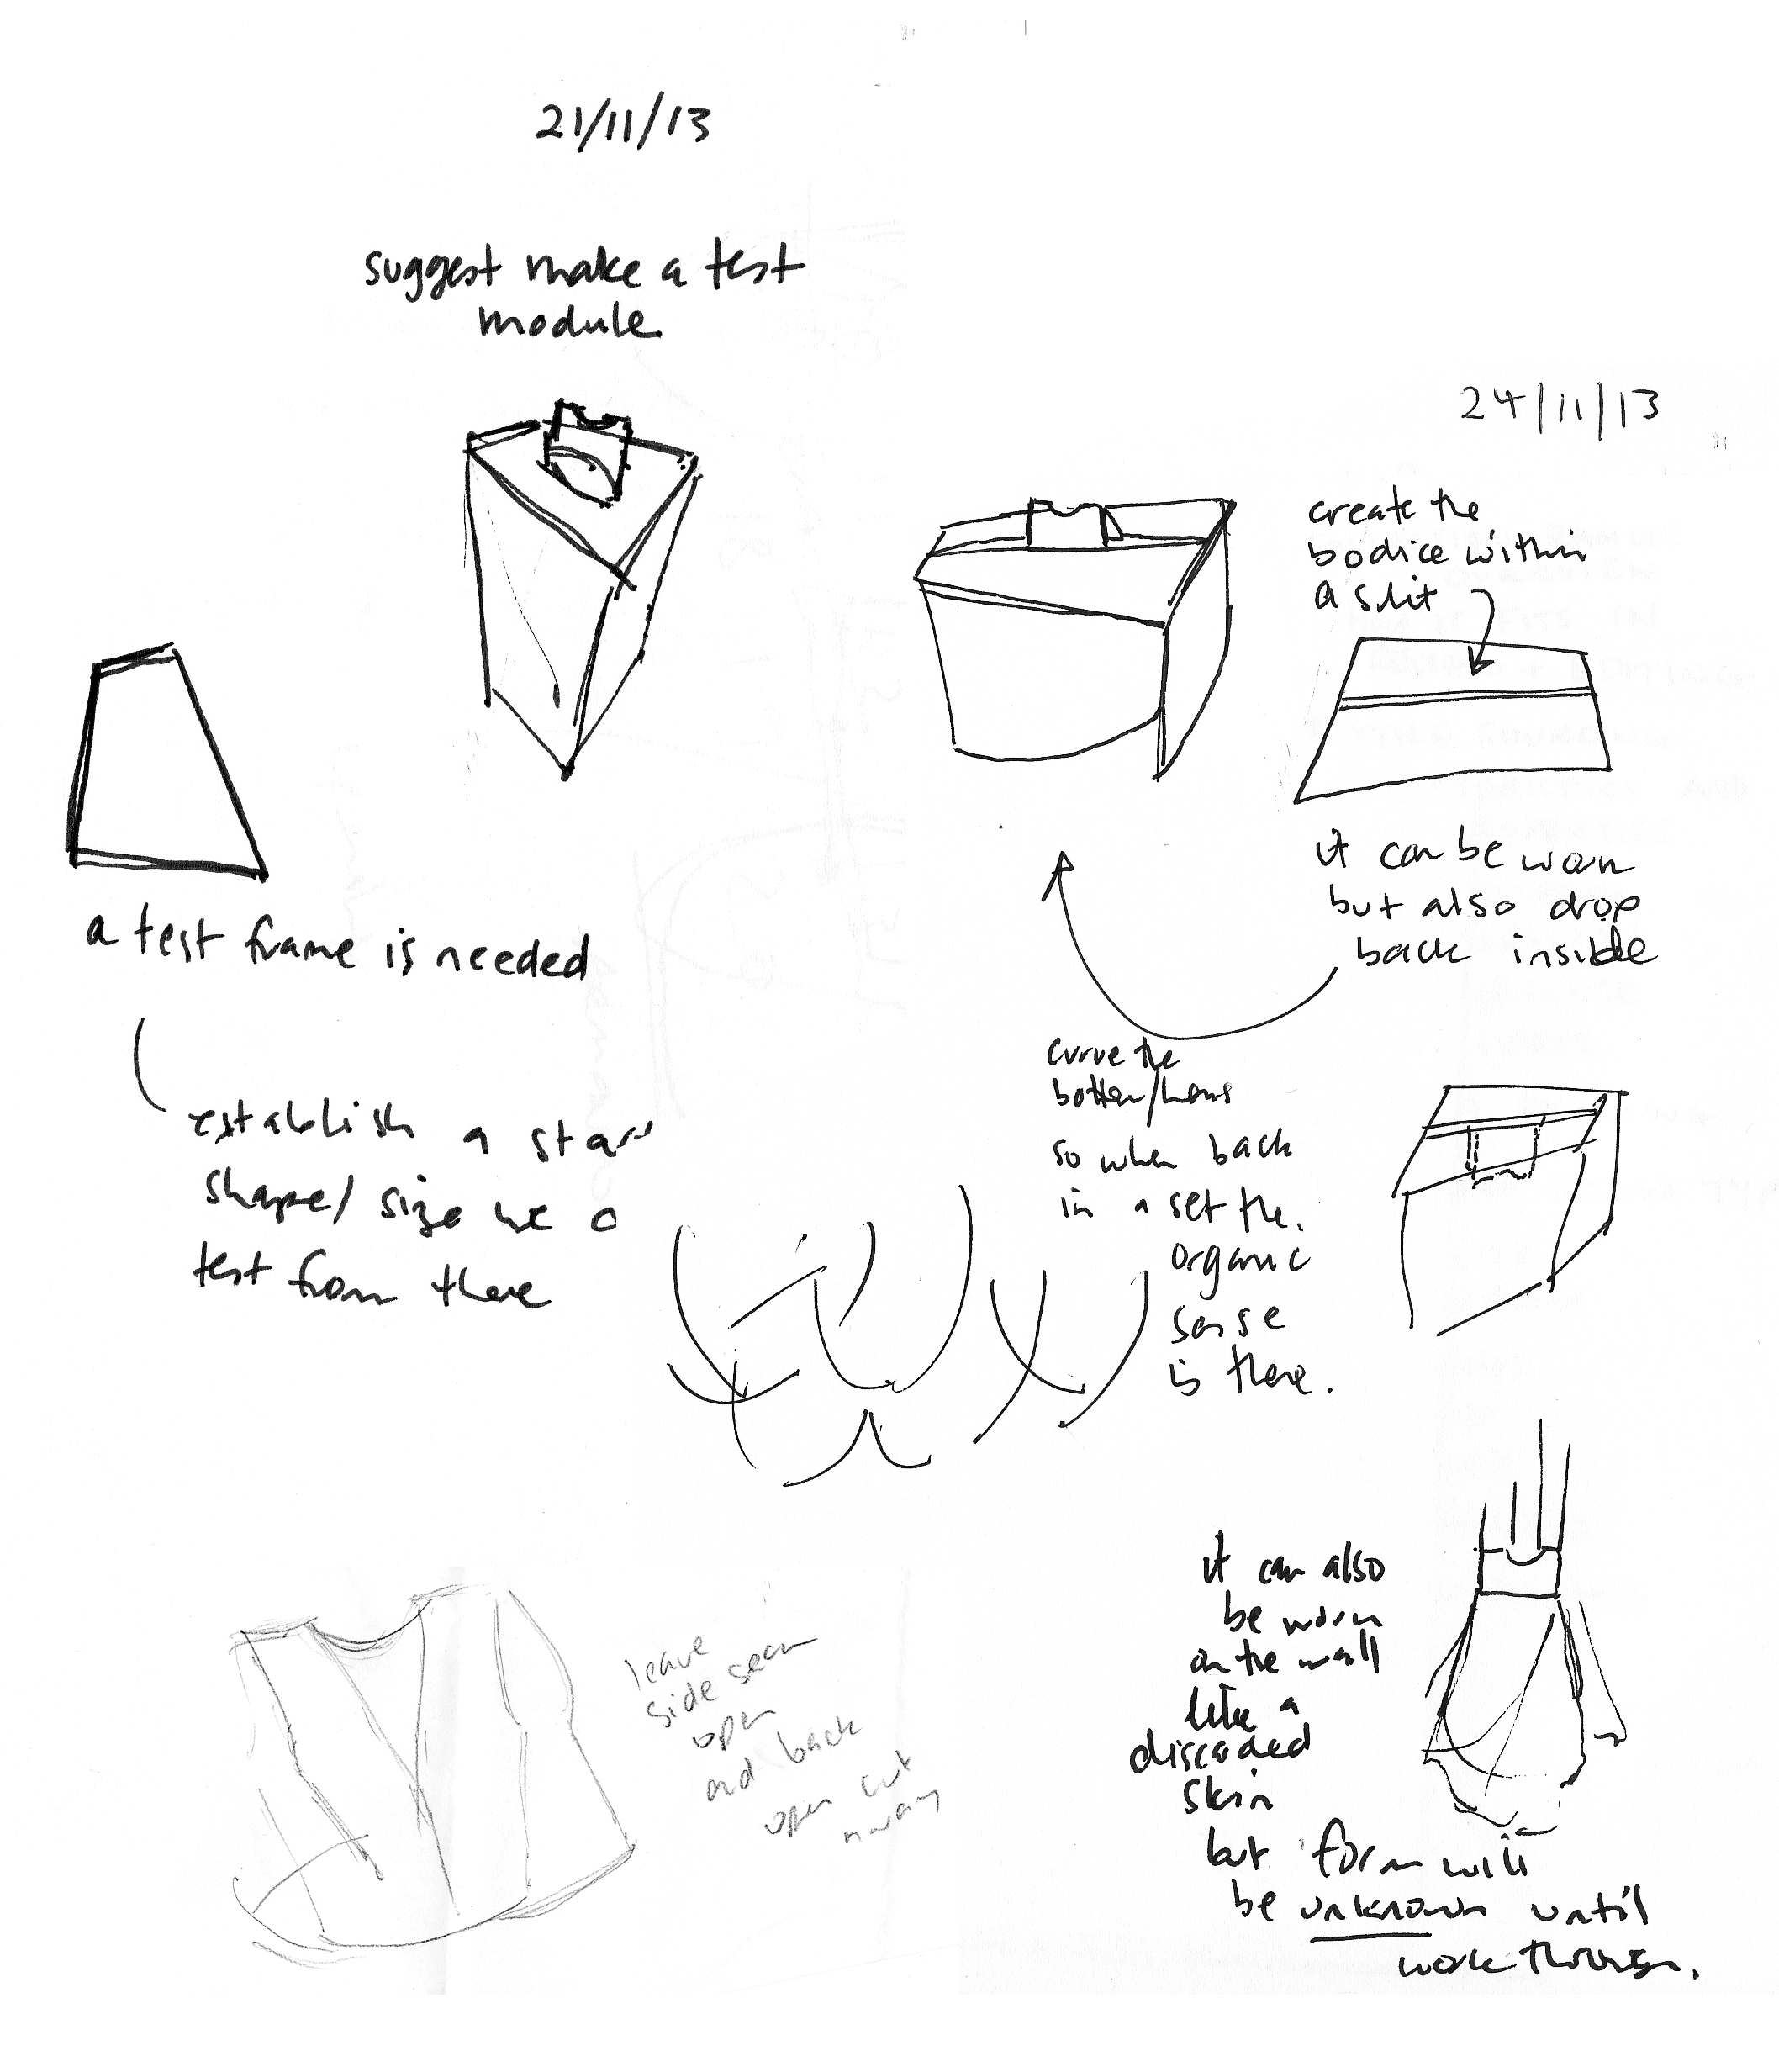 21/11/13
suggest make a test
module
a test frame is needed
establish a
shape/ size we
test from there
24/11/13
create the
bodice within
a slit
it can be worn
but also drop
back inside
curve the
bottom/hems
so when back
in a set the.
organic
sense
is there.
leave
side seam
open
and back
open cut
away
it can also
be worn
on the wall
like a
discarded
skin
but form will
be unknown until
work through.